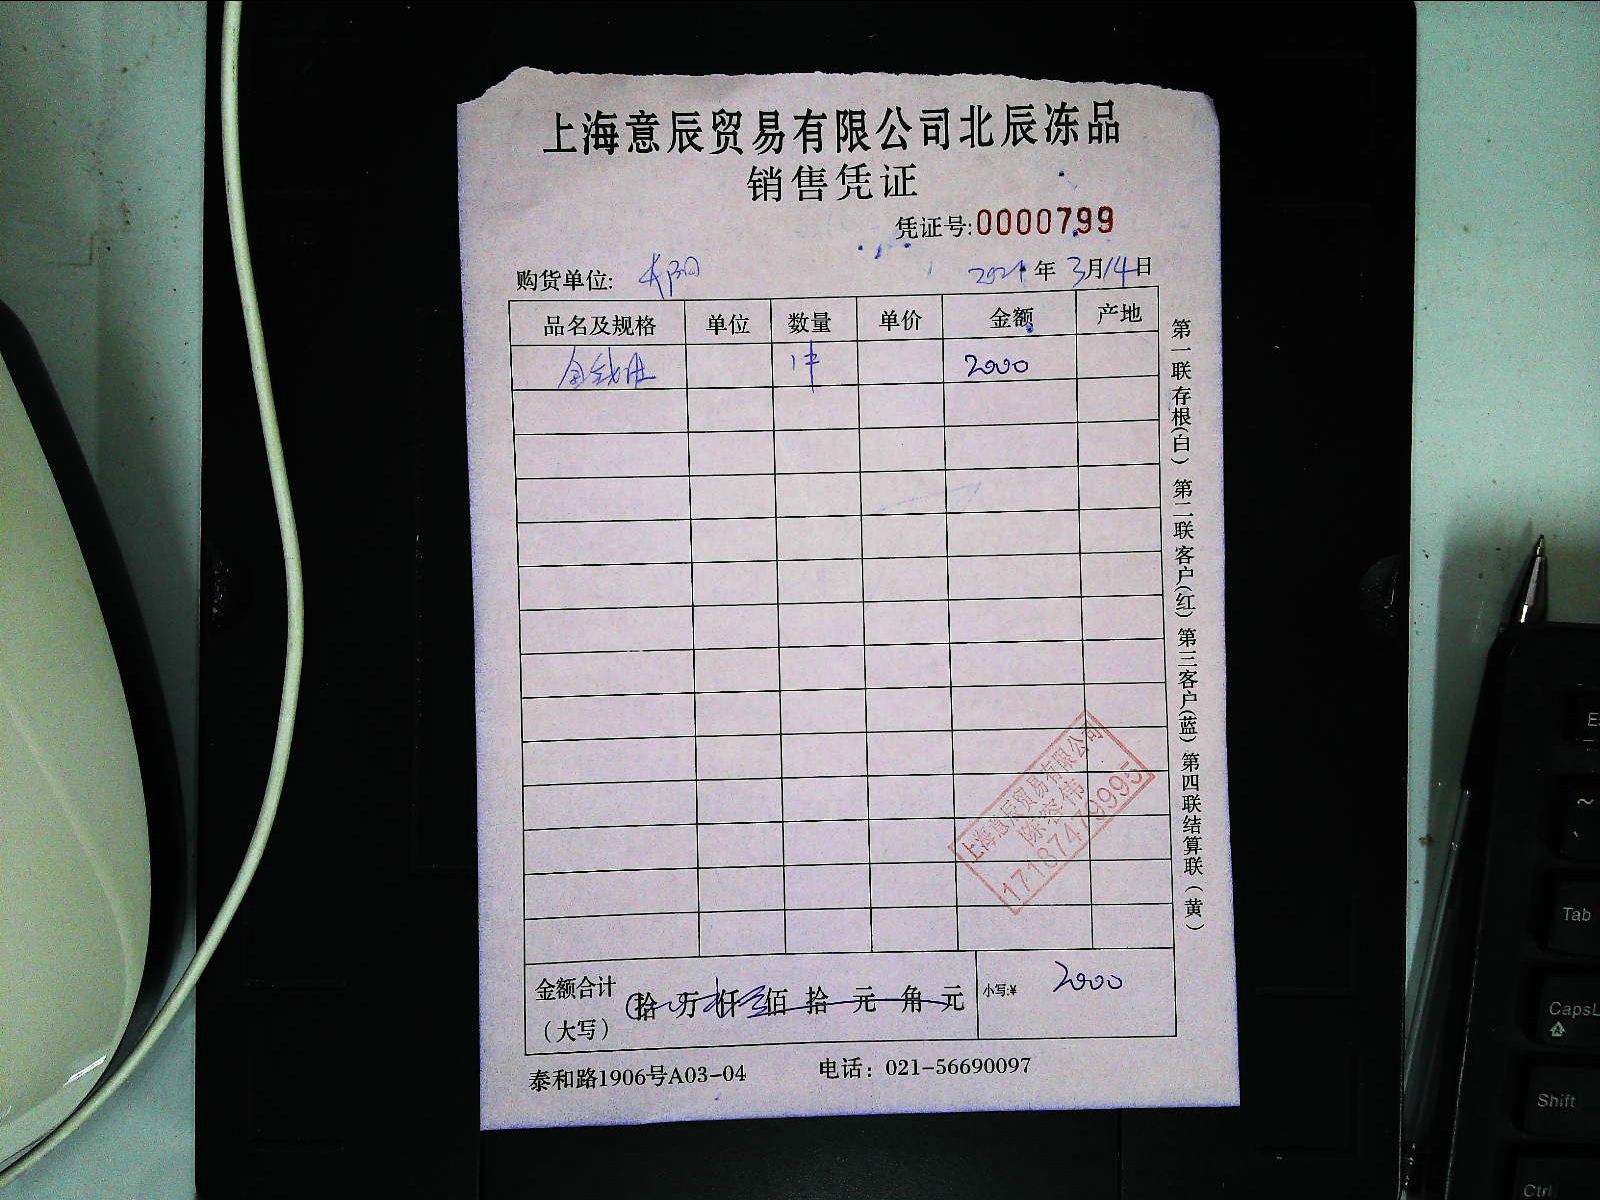 上海意辰贸易有限公司北辰冻品
销售凭证
凭证号:0000799
购货单位: 2021年3月14日
品名及规格 单位 数量 单价 金额 产地
金钱肚 1件 2000
第一联存根(白) 第二联客户(红) 第三客户(蓝) 第四联结算联(黄)
上海意辰贸易有限公司
陈容伟
17187479995
金额合计
(大写)
拾 万 仟 佰 拾 元 角 元
小写:¥ 2000
泰和路1906号A03-04 电话: 021-56690097
Tab
CapsL
Shift
Ctrl